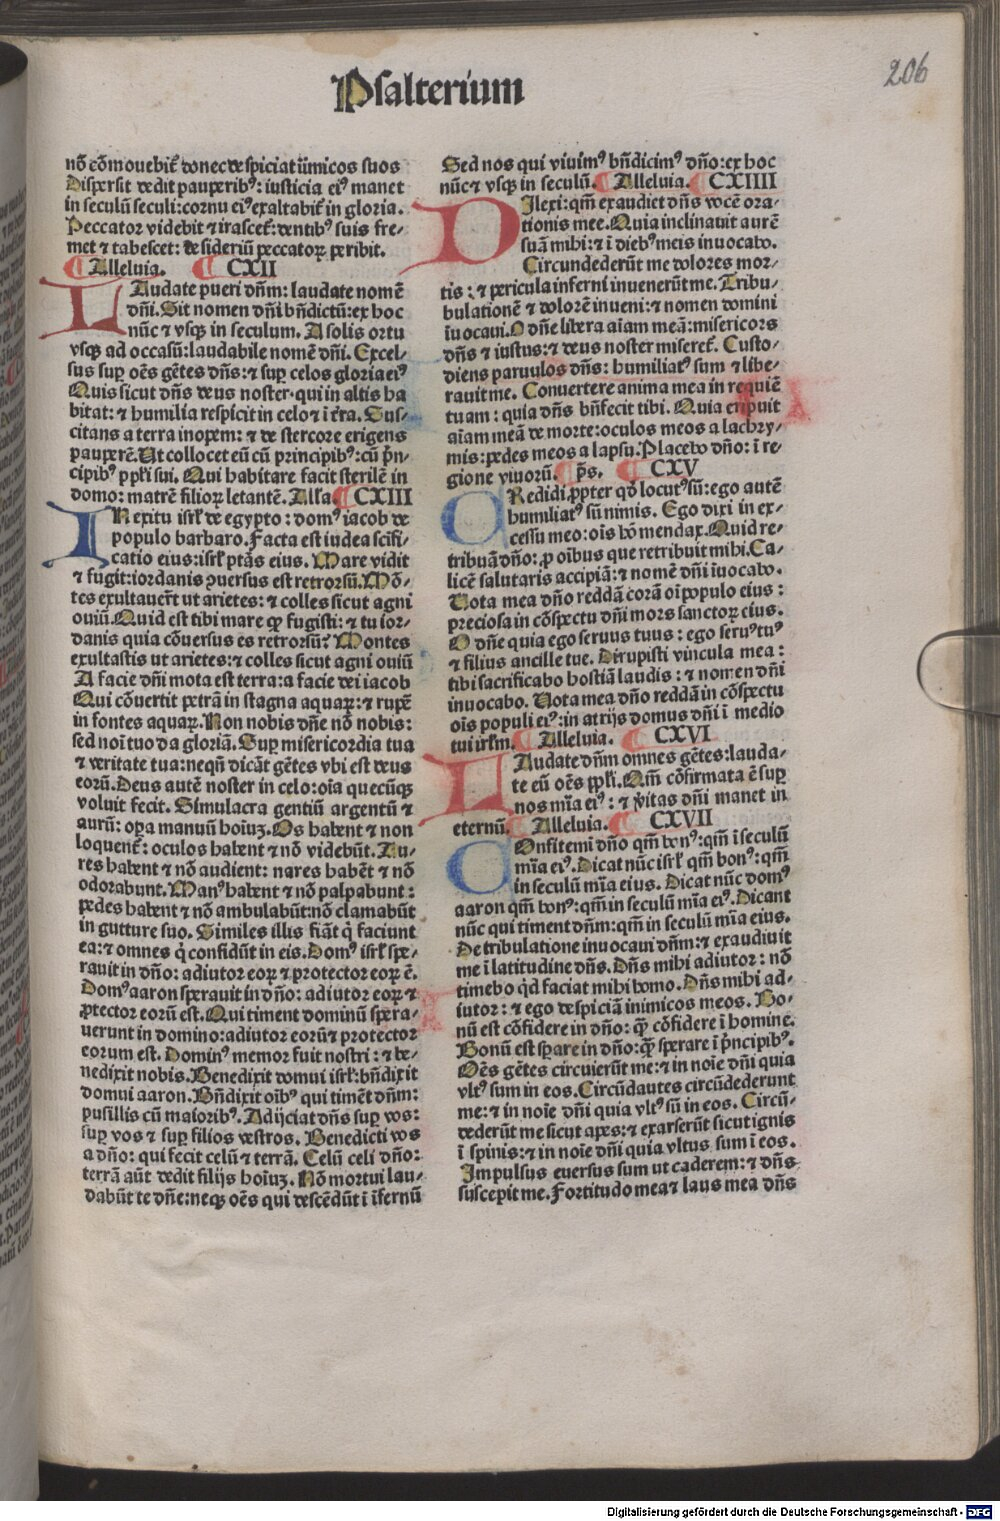 206
Psalterium
nō cōmouebiť donec despiciat ĩimicos suos
Dispersit dedit pauperib⁹: iusticia ei⁹ manet
in seculū seculi: cornu ei⁹ exaltabiť in gloria.
Peccator videbit ⁊ irasceť: dentib⁹ suis fre⸗
met ⁊ tabescet: desideriū peccatoꝝ peribit.
Alleluia. CXII
LAudate pueri dn̄m: laudate nomē
dn̄i. Sit nomen dn̄i bn̄dictū: ex hoc
nūc ⁊ vsqꝫ in seculum. A solis ortu
vsqꝫ ad occasū: laudabile nomē dn̄i. Excel⸗
sus suꝑ oēs gētes dn̄s: ⁊ suꝑ celos gloria ei⁹
Quis sicut dn̄s deus noster: qui in altis ha
bitat: ⁊ humilia respicit in celo ⁊ ĩ tr̄a. Sus⸗
citans a terra inopem: ⁊ de stercore erigens
pauperē. Ut collocet eū cū principib⁹: cū p̄n⸗
cipib⁹ ppl̓i sui. Qui habitare facit sterilē in
domo: matrē filioꝝ letantē. All̓a CXIII
IN exitu isrl̓ de egypto: dom⁹ iacob de
populo barbaro. Facta est iudea scifi⸗
catio eius: isrl̓ ptās eius. Mare vidit
⁊ fugit: iordanis ꝯuersus est retrorsū. Mō⸗
tes exultauer̄t ut arietes: ⁊ colles sicut agni
ouiū. Quid est tibi mare ꝙ fugisti: ⁊ tu ior⸗
danis quia cōuersus es retrorsū? Montes
exultastis ut arietes: ⁊ colles sicut agni ouiū
A facie dn̄i mota est terra: a facie dei iacob
Qui cōuertit petrā in stagna aquaꝝ: ⁊ rupē
in fontes aquaꝝ. Non nobis dn̄e nō nobis:
sed noĩ tuo da gloriā. Suꝑ misericordia tua
⁊ veritate tua: neqn̄ dicāt gētes vbi est deus
eorū. Deus autē noster in celo: oĩa quecūqꝫ
voluit fecit. Simulacra gentiū argentū ⁊
aurū: oꝑa manuū hoĩuꝫ. Os habent ⁊ non
loquenť: oculos habent ⁊ nō videbūt. Au⸗
res habent ⁊ nō audient: nares habēt ⁊ nō
odorabunt. Man⁹ habent ⁊ nō palpabunt:
pedes habent ⁊ nō ambulabūt: nō clamabūt
in gutture suo. Similes illis fiāt q̇ faciunt
ea: ⁊ omnes q̇ confidūt in eis. Dom⁹ isrl̓ spe⸗
rauit in dn̄o: adiutor eoꝝ ⁊ protector eoꝝ ē.
Dom⁹ aaron sperauit in dn̄o: adiutor eoꝝ ⁊
ꝓtector eorū est. Qui timent dominū spera⸗
uerunt in domino: adiutor eorū ⁊ protector
eorum est. Domin⁹ memor fuit nostri: ⁊ be⸗
nedixit nobis. Benedixit domui isrl̓: bn̄dixit
domui aaron. Bn̄dixit oĩb⁹ qui timēt dn̄m:
pusillis cū maiorib⁹. Adijciat dn̄s suꝑ vos:
suꝑ vos ⁊ suꝑ filios vestros. Benedicti vos
a dn̄o: qui fecit celū ⁊ terrā. Celū celi dn̄o:
terrā aūt dedit filijs hoĩuꝫ. Nō mortui lau⸗
dabūt te dn̄e: neqꝫ oēs qui descēdūt ĩ ĩfernū
Sed nos qui viuim⁹ bn̄dicim⁹ dn̄o: ex hoc
nūc ⁊ vsqꝫ in seculū. Alleluia. CXIIII
DIlexi: qm̄ exaudiet dn̄s vocē ora⸗
tionis mee. Quia inclinauit aurē
suā mihi: ⁊ ĩ dieb⁹ meis inuocabo.
Circundederūt me dolores mor⸗
tis: ⁊ pericula inferni inuenerūt me. Tribu⸗
lationē ⁊ dolorē inueni: ⁊ nomen domini
ĩuocaui. O dn̄e libera aĩam meā: misericors
dn̄s ⁊ iustus: ⁊ deus noster misereť. Custo⸗
diens paruulos dn̄s: humiliat⁹ sum ⁊ libe⸗
rauit me. Conuertere anima mea in requiē
tuam: quia dn̄s bn̄fecit tibi. Quia eripuit
aĩam meā de morte: oculos meos a lachry⸗
mis: pedes meos a lapsu. Placebo dn̄o: ĩ re⸗
gione viuorū. p̄s. CXV
CRedidi ꝓpter qď locut⁹ sū: ego autē
humiliat⁹ sū nimis. Ego dixi in ex⸗
cessu meo: oĩs hō mendax. Quid re⸗
tribuā dn̄o: ꝓ oĩbus que retribuit mihi. Ca⸗
licē salutaris accipiā: ⁊ nomē dn̄i ĩuocabo.
Vota mea dn̄o reddā corā oĩ populo eius:
preciosa in cōspectu dn̄i mors sanctoꝝ eius.
O dn̄e quia ego seruus tuus: ego seru⁹ tu⁹
⁊ filius ancille tue. Dirupisti vincula mea:
tibi sacrificabo hostiā laudis: ⁊ nomen dn̄i
inuocabo. Vota mea dn̄o reddā in cōspectu
oĩs populi ei⁹: in atrijs domus dn̄i ĩ medio
tui irl̓m. Alleluia. CXVI
LAudate dn̄m omnes gētes: lauda⸗
te eū oēs ppl̓i. Qm̄ cōfirmata ē suꝑ
nos mĩa ei⁹: ⁊ v̓itas dn̄i manet in
eternū. Alleluia. CXVII
COnfitemi dn̄o qm̄ bon⁹: qm̄ ĩ seculū
mĩa ei⁹. Dicat nūc isrl̓ qm̄ bon⁹: qm̄
in seculū mĩa eius. Dicat nūc dom⁹
aaron qm̄ bon⁹: qm̄ in seculū mĩa ei⁹. Dicant
nūc qui timent dn̄m: qm̄ in seculū mĩa eius.
De tribulatione inuocaui dn̄m: ⁊ exaudiuit
me ĩ latitudine dn̄s. Dn̄s mihi adiutor: nō
timebo qd̓ faciat mihi homo. Dn̄s mihi ad⸗
iutor: ⁊ ego despiciā inimicos meos. Bo⸗
nū est cōfidere in dn̄o: qꝫ̄ cōfidere ĩ homine.
Bonū est sꝑare in dn̄o: qꝫ̄ sperare ĩ p̄ncipib⁹.
Oēs gētes circuierūt me: ⁊ in noĩe dn̄i quia
vlt⁹ sum in eos. Circūdautes circūdederunt
me: ⁊ in noĩe dn̄i quia vlt⁹ sū in eos. Circū⸗
dederūt me sicut apes: ⁊ exarserūt sicut ignis
ĩ spinis: ⁊ in noĩe dn̄i quia vltus sum ĩ eos.
Impulsus euersus sum ut caderem: ⁊ dn̄s
suscepit me. Fortitudo mea ⁊ laus mea dn̄s
Digitalisierung gefördert durch die Deutsche Forschungsgemeinschaft - DFG